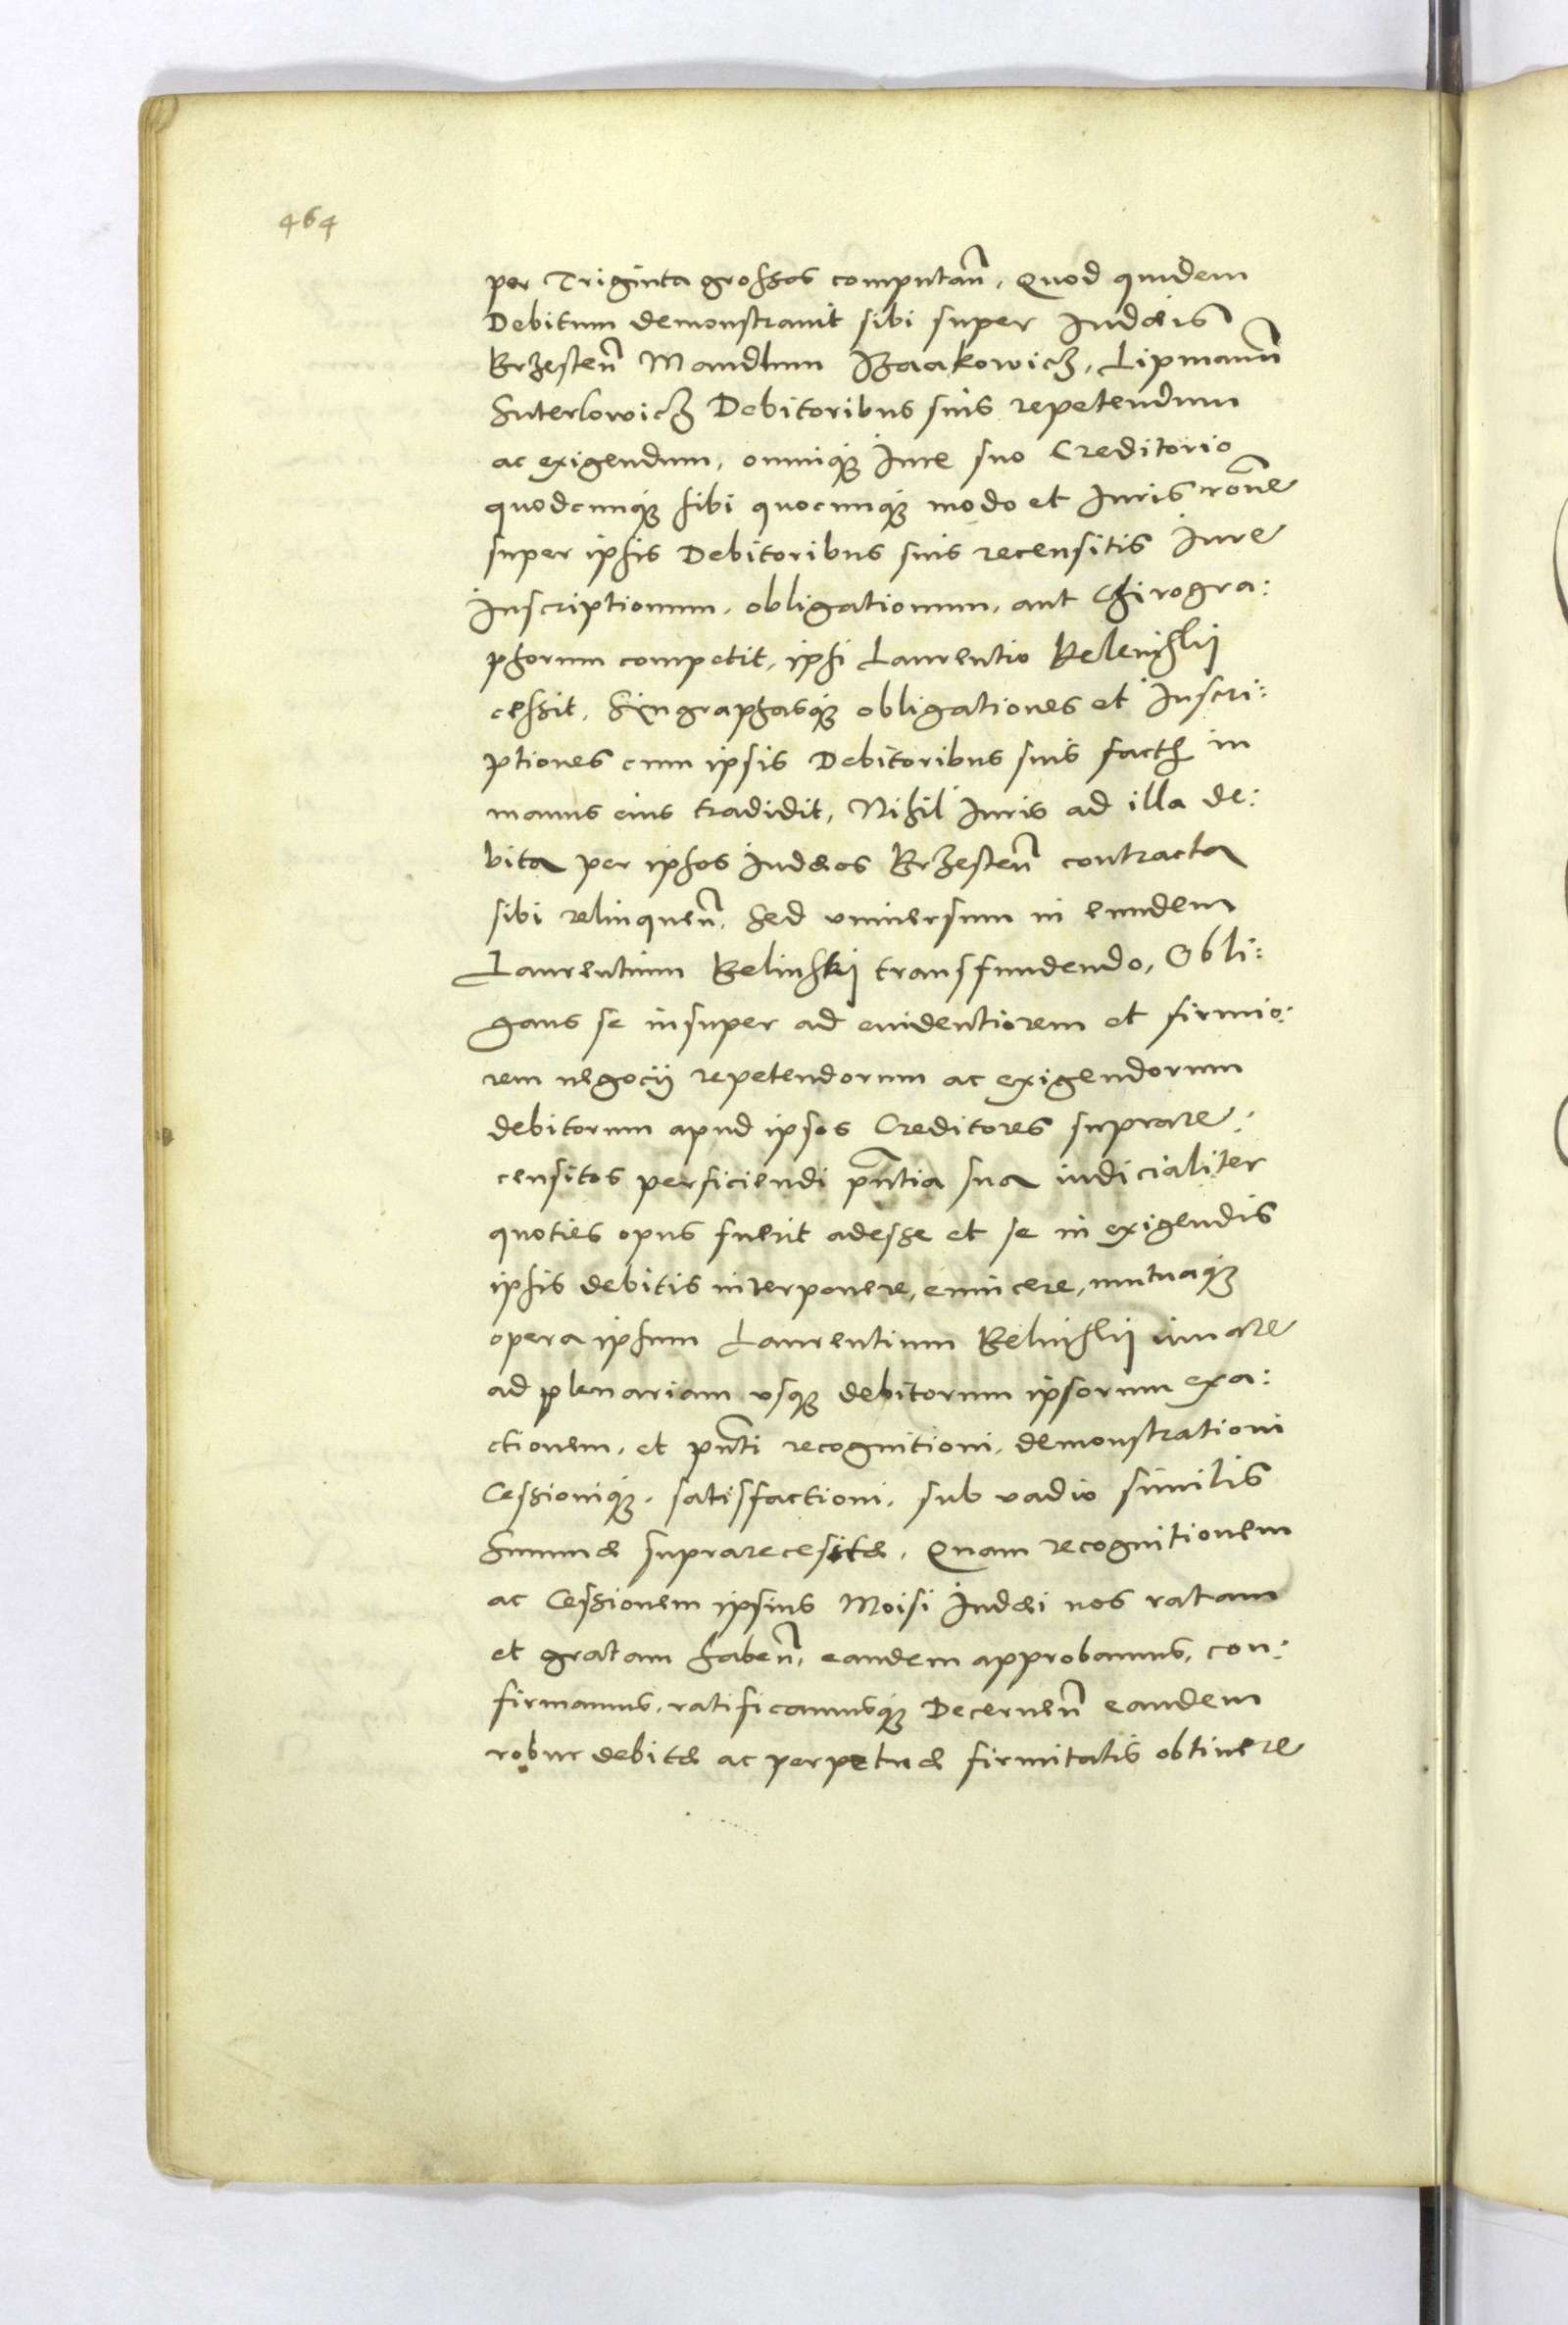 464
per Triginta grossos computan̄, Quod quidem
Debitum demonstravit sibi super Iudæis
Brzesten̄ Mandlum Izaakowicz, Lipmann̄
Suterlowicz Debitoribus suis repetendum
ac exigendum, omniqꜣ Iure suo Creditorio
quodcunqꜣ sibi quocunqꜣ modo et Iuris rōne
super ipsis Debitoribus suis recensitis Iure
Inscriptionum, obligationum, aut Chirogra:
phorum competit, ipsi Laurentio
cessit, Singraphasqꜣ obligationes et Inscri:
ptiones cum ipsis Debitoribus suis fact in
manus eius tradidit, Nihil Iuris ad illa de:
bita per ipsos Iudæos Brzesten̄ contracta
sibi relinquen̄, sed universum in eundem
Laurentium Belinskij transfundendo, Obli:
gans se insuper ad evidentiorem et firmio:
rem negocij repetendorum ac exigendorum
debitorum apud ipsos Creditores suprare:
censitos perficiendi pn̄tia sua iudicialiter
quoties opus fuerit adesse et se in exigendis
ipsis debitis interponere, evincere, mutuaqꜣ
opera ipsum Laurentium Belinskij iuvare
ad plenariam usqꜣ debitorum ipsorum exa:
ctionem, et pn̄ti recognitioni, demonstrationi
Cessioniqꜣ, satisfactioni, sub vadio similis
Summæ supraresesitæ, Quam recognitionem
ac Cessionem ipsius Moisi Iudæi nos ratam
et gratam haben̄, eandem approbamus, con:
firmamus, ratificamusqꜣ Decernen̄ eandem
robur debitæ ac perpetuæ firmitatis obtinere